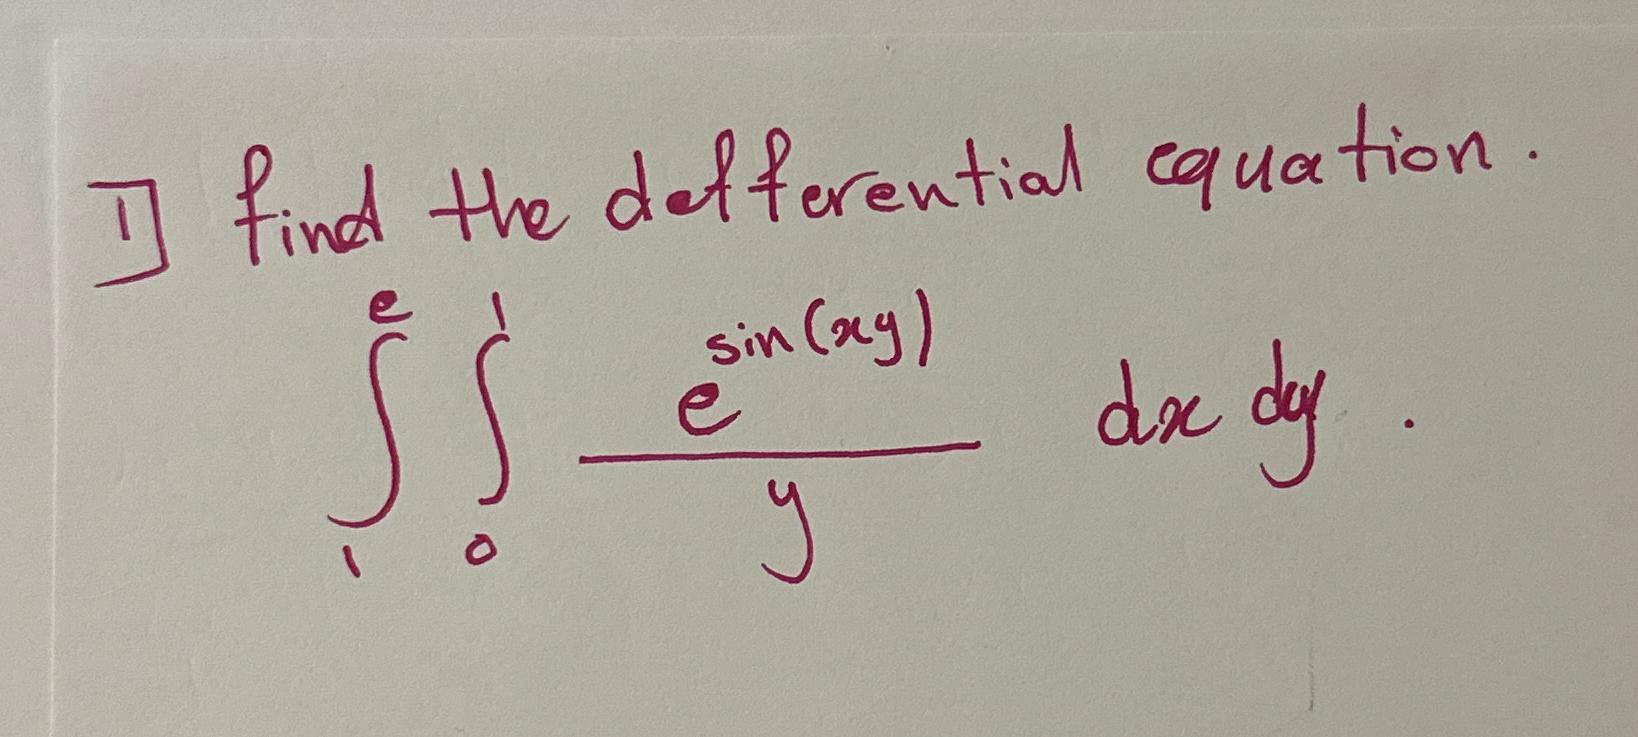 1] find the defferential equation.
∫₁ᵉ ∫₀¹ e^sin(xy) / y dx dy.